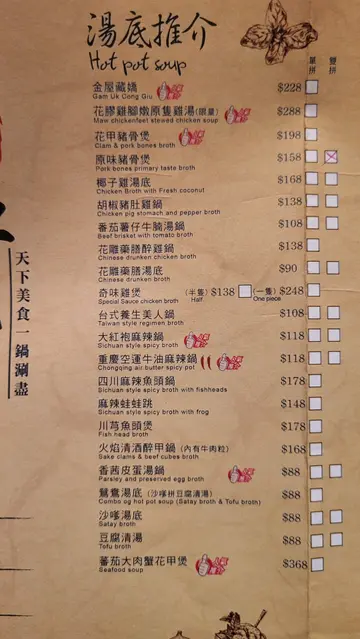 湯底推介
Hot pot soup
單拼 雙拼
金屋藏嬌 $228
Gam Uk Cong Giu
花膠雞腳燉原隻雞湯(限量) $288
Maw chickenfeet stewed chicken soup
花甲豬骨煲 $198
Clam & pork bones broth
原味豬骨煲 $158
Pork bones primary taste broth
椰子雞湯底 $168
Chicken Broth with Fresh coconut
胡椒豬肚雞鍋 $138
Chicken pig stomach and pepper broth
蕃茄薯仔牛腩湯鍋 $108
Beef brisket with tomato broth
花雕藥膳醉雞鍋 $138
Chinese drunken chicken broth
花雕藥膳湯底 $90
Chinese drunken broth
奇味雞煲 (半隻) $138 (一隻) $248
Special Sauce chicken broth Half One piece
台式養生美人鍋 $108
Taiwan style regimen broth
大紅袍麻辣鍋 $118
Sichuan style spicy broth
重慶空運牛油麻辣鍋 $118
Chongqing air butter spicy pot
四川麻辣魚頭鍋 $178
Sichuan style spicy broth with fishheads
麻辣蛙蛙跳 $148
Sichuan style spicy broth with frog
川芎魚頭煲 $178
Fish head broth
火焰清酒醉甲鍋 (內有牛肉粒) $168
Sake clams & beef cubes broth
香茜皮蛋湯鍋 $88
Parsley and preserved egg broth
鴛鴦湯底 (沙嗲拼豆腐清湯) $88
Combo og hot pot soup (Satay broth & Tofu broth)
沙嗲湯底 $88
Satay broth
豆腐清湯 $88
Tofu broth
蕃茄大肉蟹花甲煲 $368
Seafood soup
天下美食一鍋涮盡